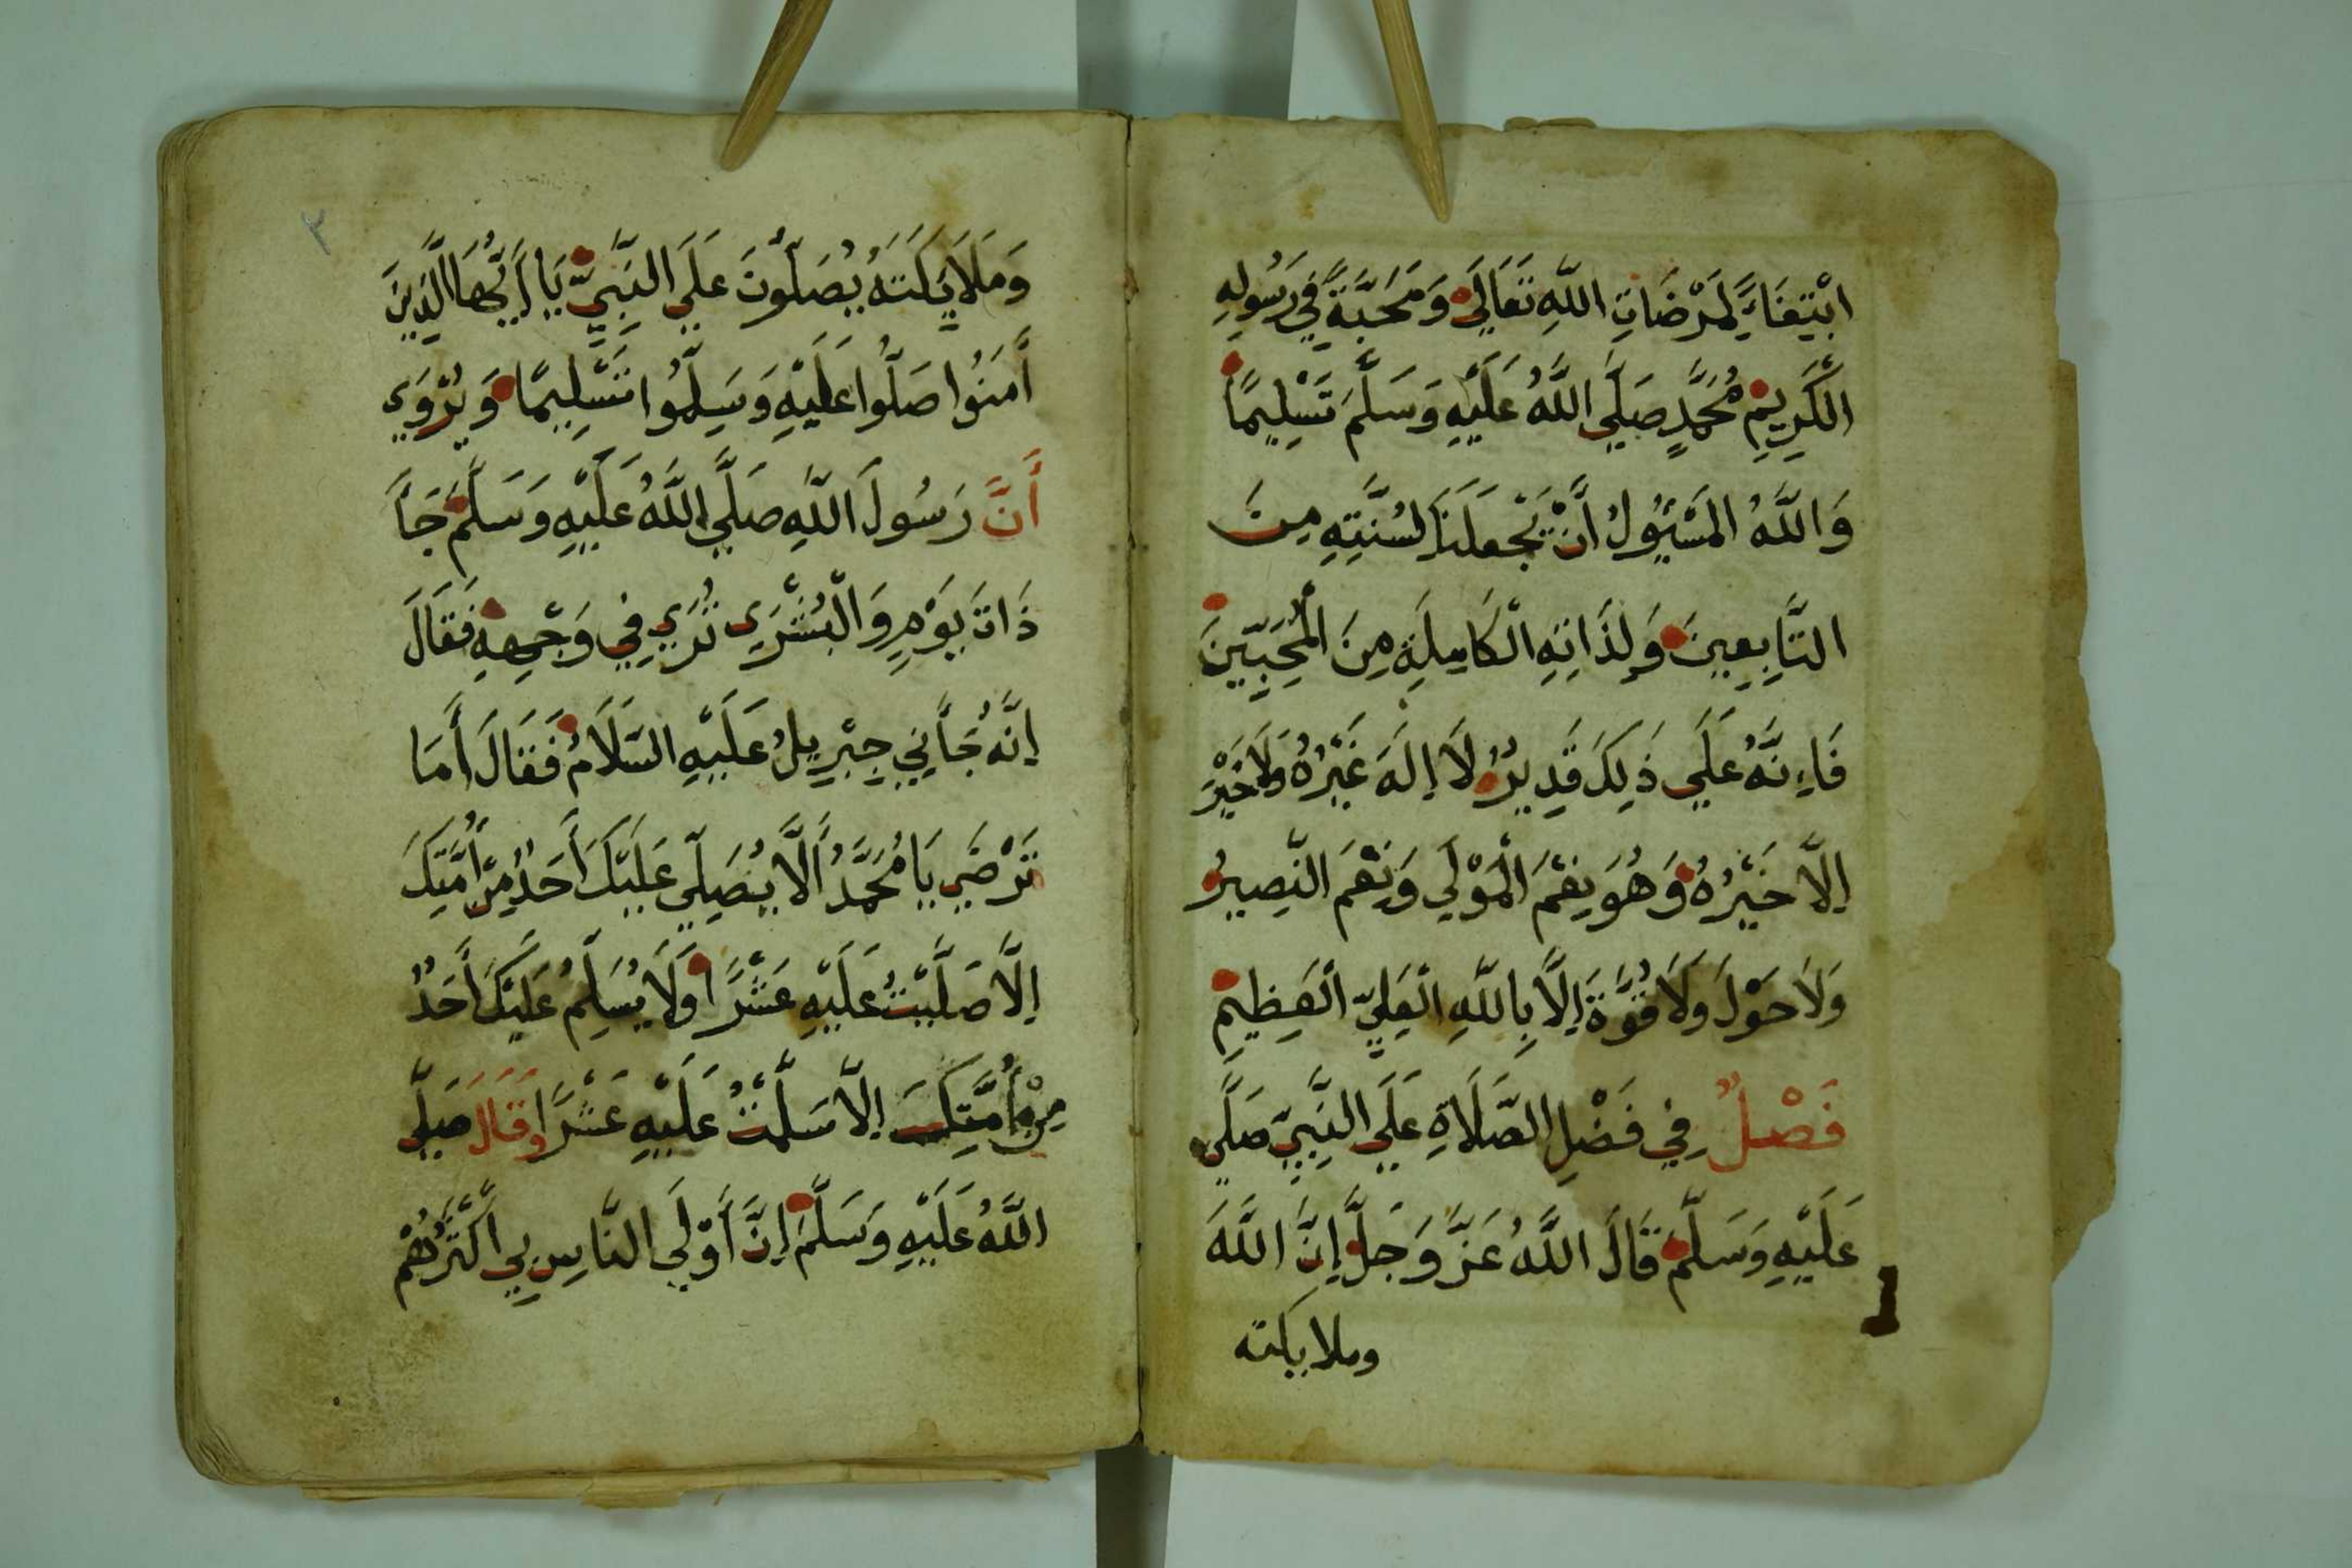 ابْتِغَاءً لِمَرْضَاتِ اللَّهِ تَعَالَى وَمَحَبَّةً فِي رَسُولِهِ
الْكَرِيمِ مُحَمَّدٍ صَلَّى اللَّهُ عَلَيْهِ وَسَلَّمَ تَسْلِيمًا
وَاللَّهُ الْمَسْئُولُ أَنْ يَجْعَلَنَا لِسُنَّتِهِ مِنَ
التَّابِعِينَ وَلِذَاتِهِ الْكَامِلَةِ مِنَ الْمُحِبِّينَ
فَاءِنَّهُ عَلَى ذَلِكَ قَدِيرٌ لَا إِلَهَ غَيْرُهُ وَلَا خَيْرَ
إِلَّا خَيْرُهُ وَهُوَ نِعْمَ الْمَوْلَى وَنِعْمَ النَّصِيرُ
وَلَا حَوْلَ وَلَا قُوَّةَ إِلَّا بِاللَّهِ الْعَلِيِّ الْعَظِيمِ
فَصْلٌ فِي فَضْلِ الصَّلَاةِ عَلَى النَّبِيِّ صَلَّى
عَلَيْهِ وَسَلَّمَ قَالَ اللَّهُ عَزَّ وَجَلَّ إِنَّ اللَّهَ
وملايكته
٢
وَمَلَايِكَتَهُ يُصَلُّونَ عَلَى النَّبِيِّ يَا أَيُّهَا الَّذِينَ
أَمَنُوا صَلُّوا عَلَيْهِ وَسَلِّمُوا تَسْلِيمًا وَيُرْوَى
أَنَّ رَسُولَ اللَّهِ صَلَّى اللَّهُ عَلَيْهِ وَسَلَّمَ جَاَ
ذَاتَ يَوْمٍ وَالْبُشْرَى تُرَى فِي وَجْهِهِ فَقَالَ
إِنَّهُ جَاَنِي جِبْرِيلُ عَلَيْهِ السَّلَامُ فَقَالَ أَمَا
تَرْضَى يَا مُحَمَّدُ أَلَّا يُصَلِّي عَلَيْكَ أَحَدٌ مِنْ أُمَّتِكَ
إِلَّا صَلَّيْتُ عَلَيْهِ عَشْرًا وَلَا يُسَلِّمُ عَلَيْكَ أَحَدٌ
مِنْ أُمَّتِكَ إِلَّا سَلَّمْتُ عَلَيْهِ عَشْرًا وَقَالَ صَلَّى
اللَّهُ عَلَيْهِ وَسَلَّمَ إِنَّ أَوْلَى النَّاسِ بِي أَكْثَرُهُمْ